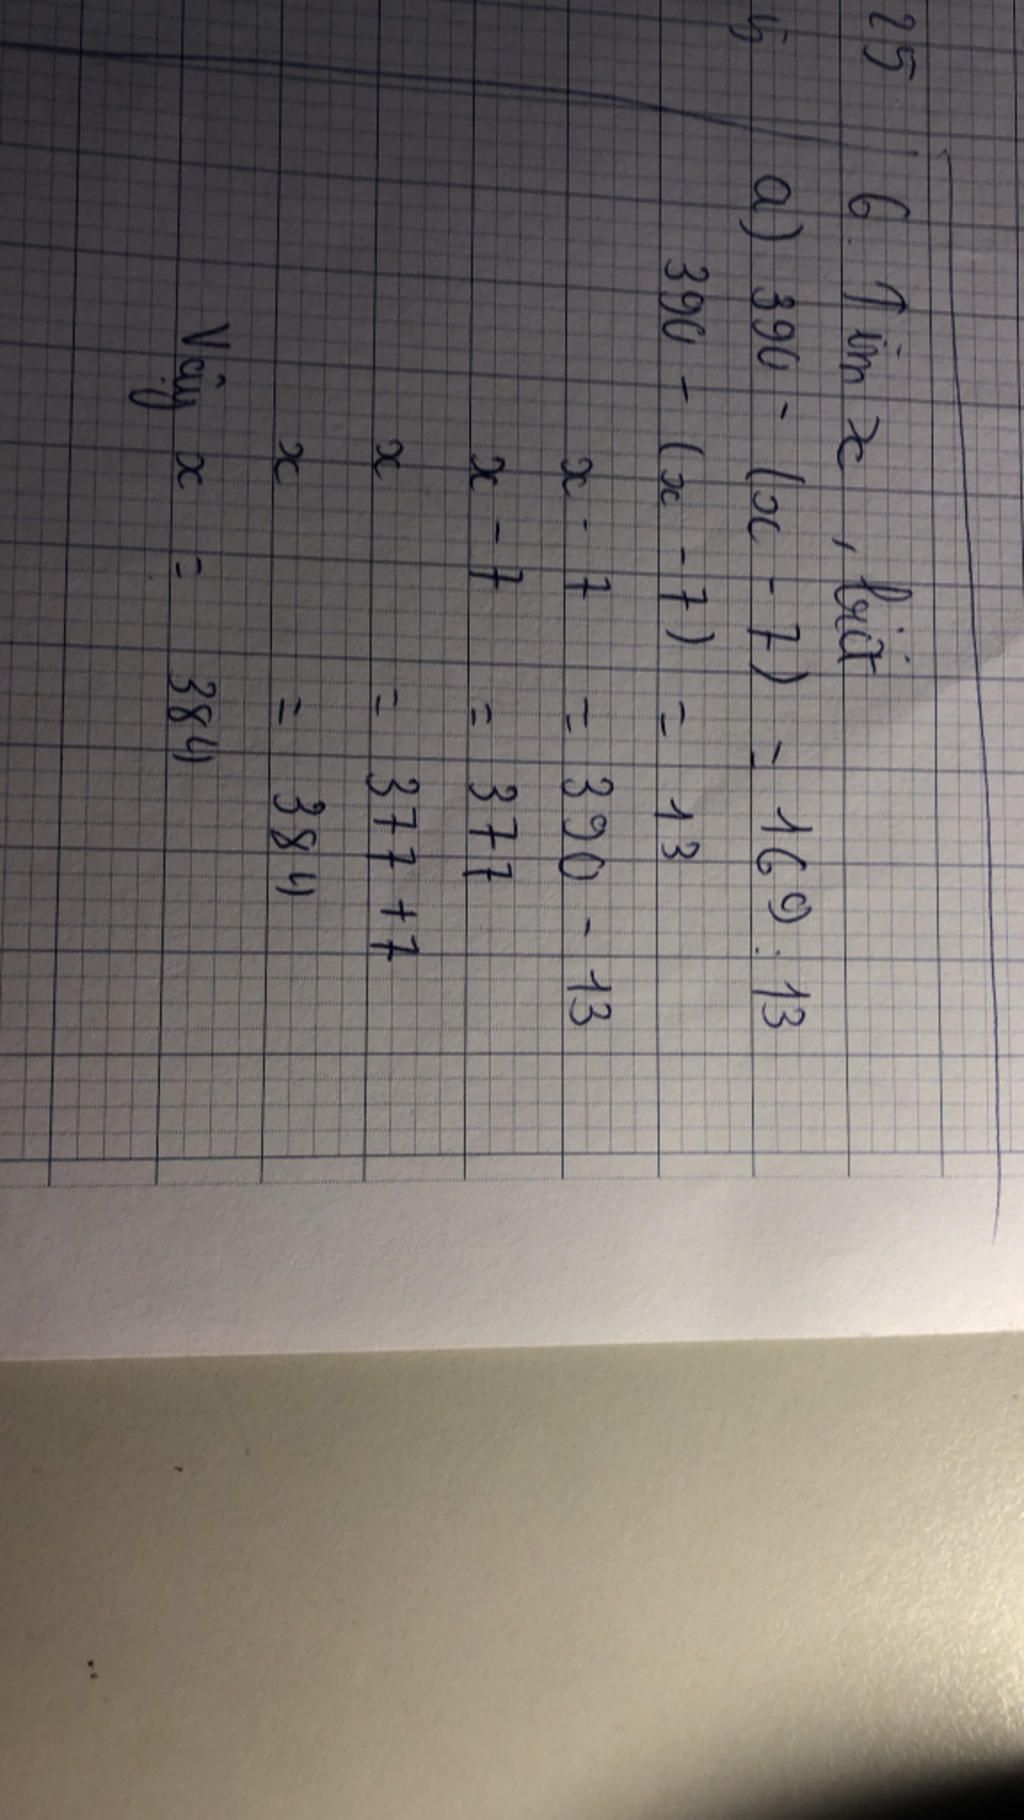 25
6. Tìm x, biết
a) 390 - (x - 7) = 169 : 13
390 - (x - 7) = 13
x - 7 = 390 - 13
x - 7 = 377
x = 377 + 7
x = 384
Vậy x = 384